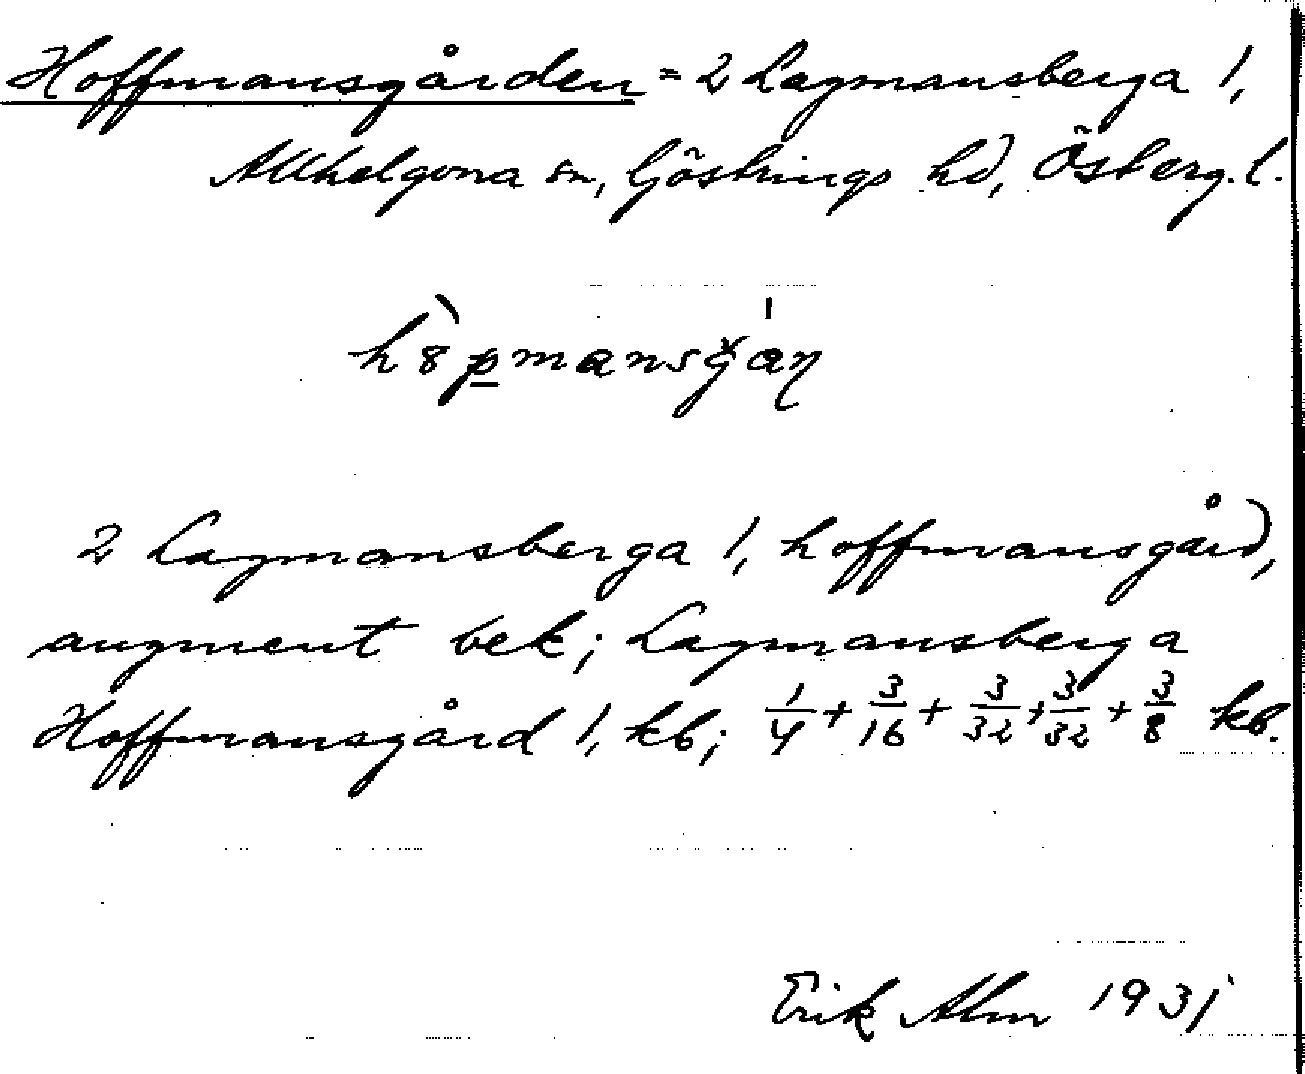 Hoffmansgården = 2 Lagmansberga 1,
Allhelgona sn, Göstrings hd, Österg. l.
2 Lagmansberga 1, hoffmansgård,
augment bek; Lagmansberga
Hoffmansgård 1, kb; 1/4 + 3/16 + 3/32 + 3/32 + 3/8 kb.
Erik Alm 1931